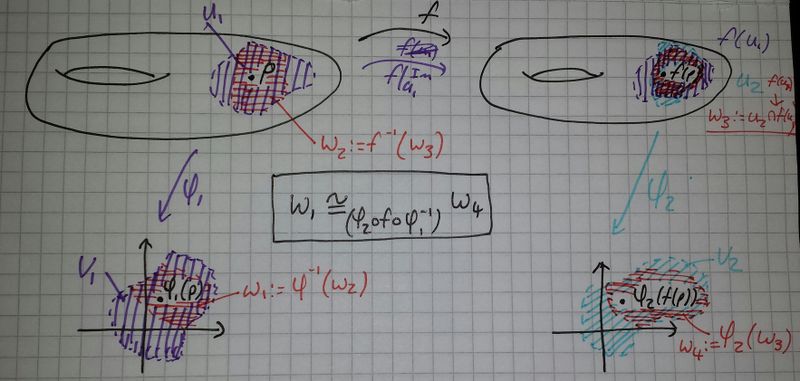 U₁
f
f(U₁)
f|Im
U₁
f(U₁)
p
f(p)
U₂
f(U₁)
W₃:=U₂∩f(U₁)
W₂:=f⁻¹(W₃)
φ₁
φ₂
W₁ ≅ W₄
(φ₂∘f∘φ₁⁻¹)
V₁
φ₁(p)
W₁:=φ⁻¹(W₂)
V₂
φ₂(f(p))
W₄:=φ₂(W₃)